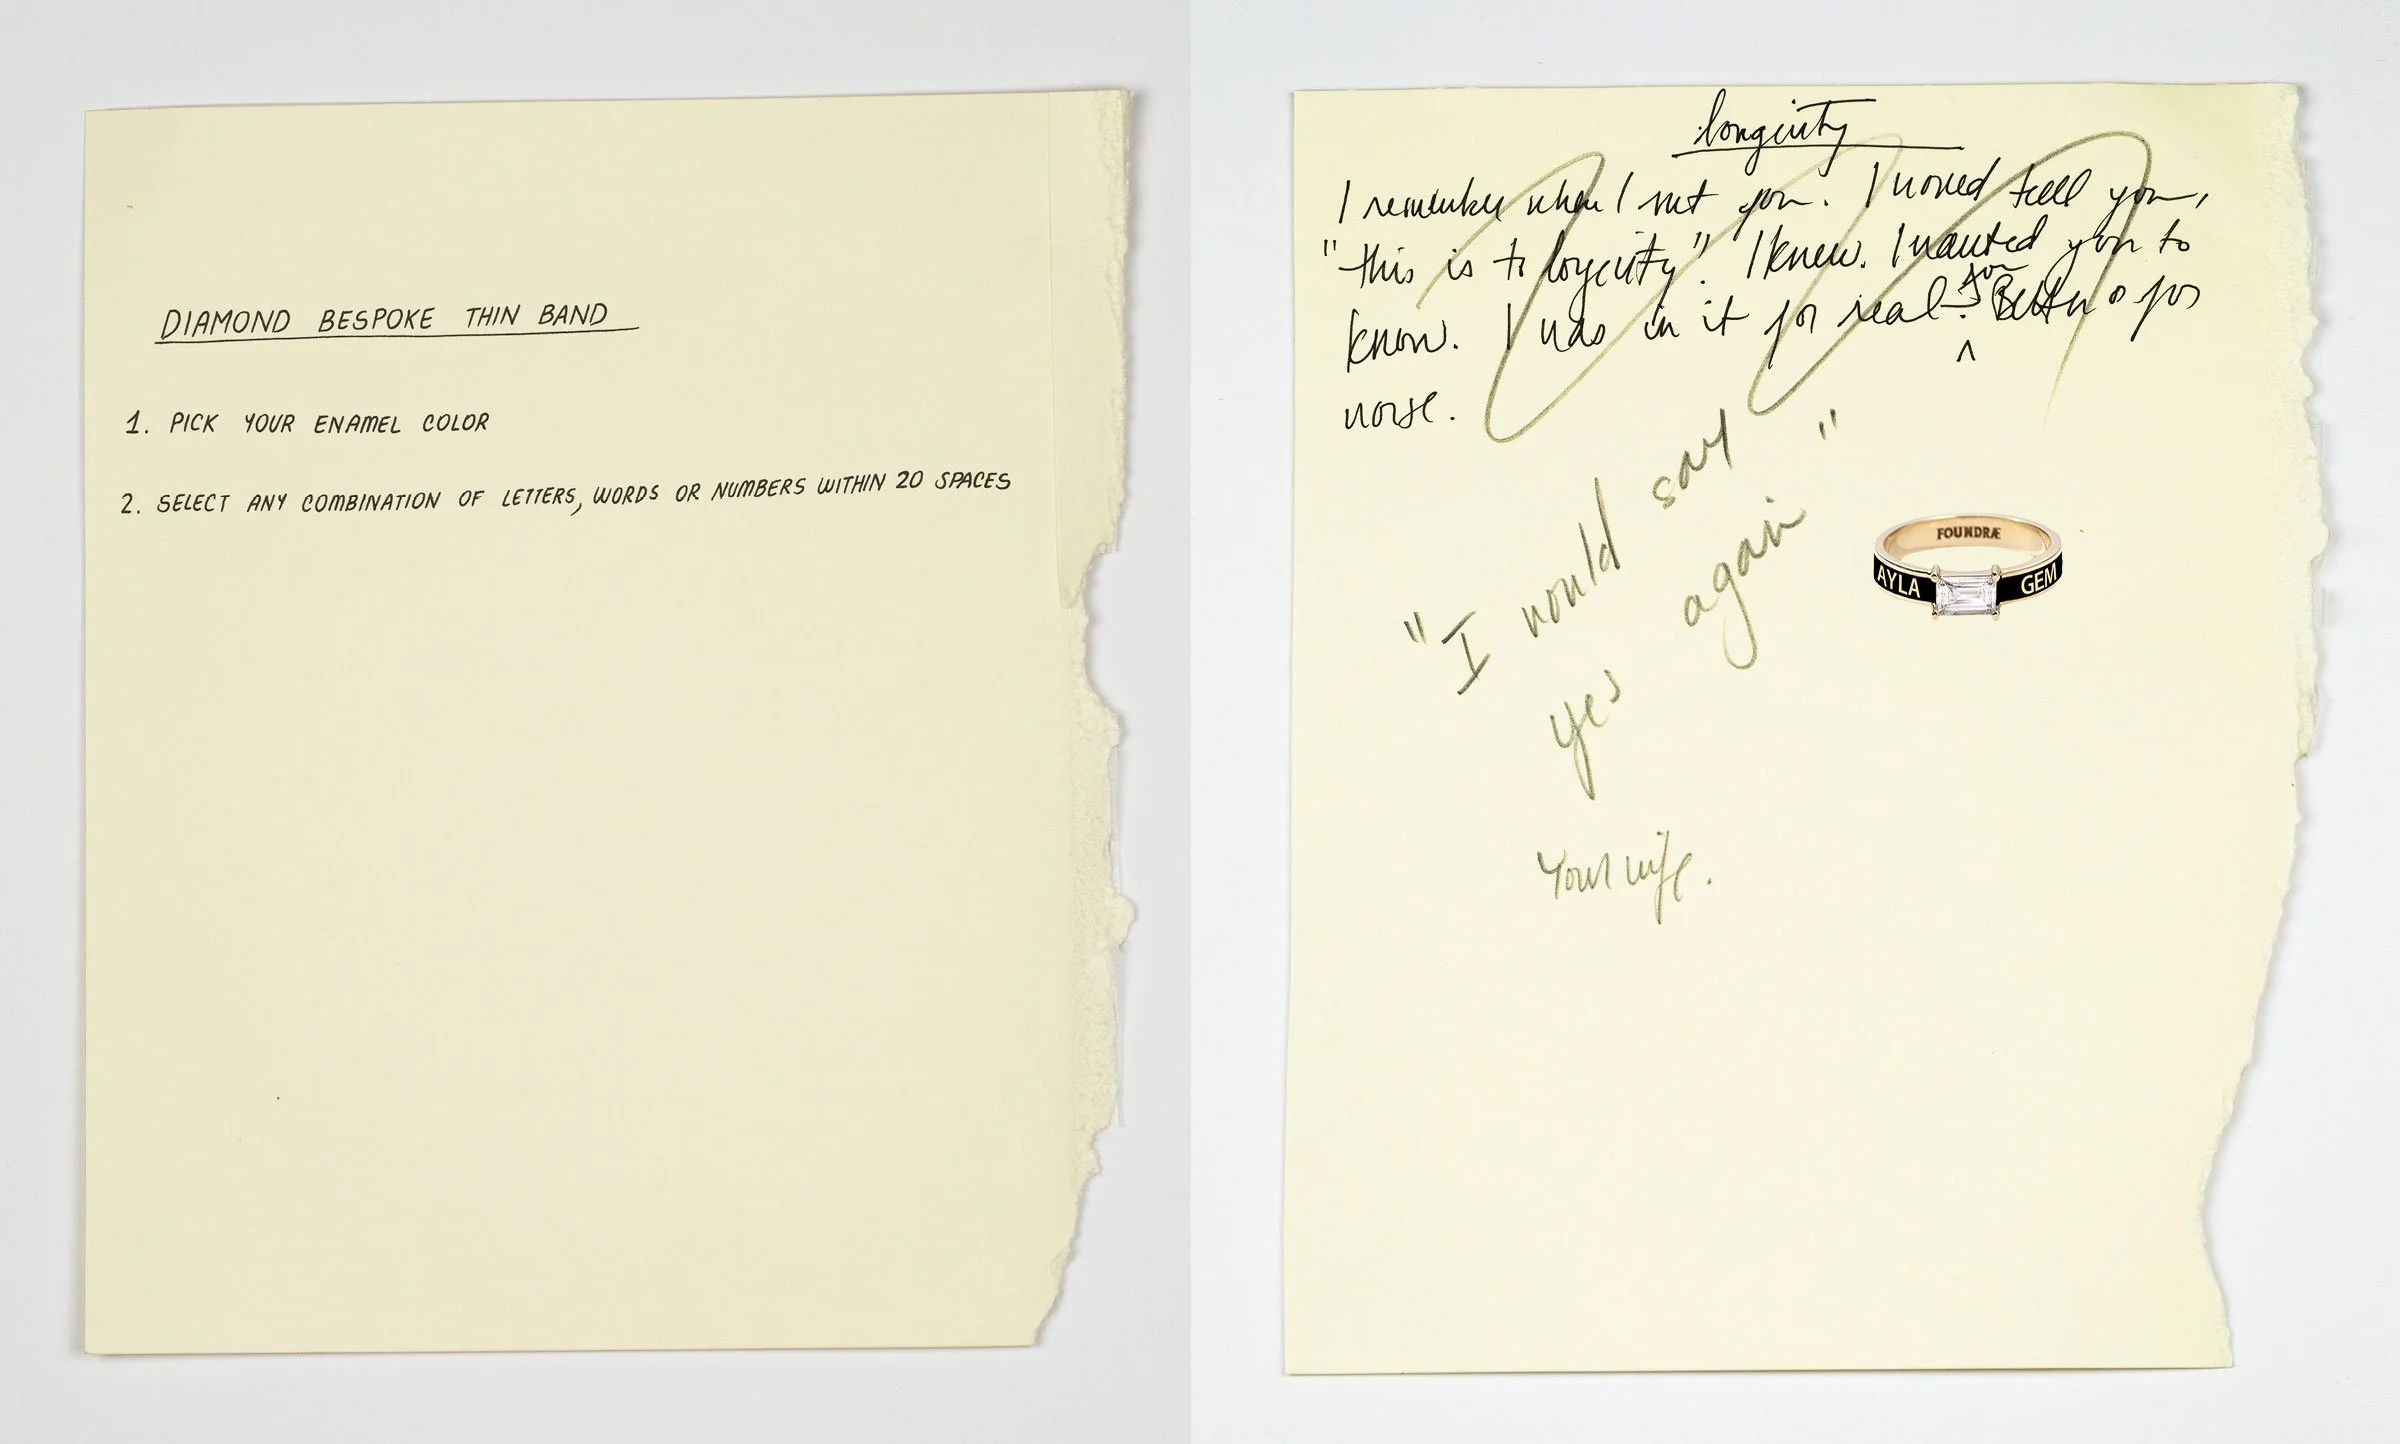 DIAMOND BESPOKE THIN BAND
1. PICK YOUR ENAMEL COLOR
2. SELECT ANY COMBINATION OF LETTERS, WORDS OR NUMBERS WITHIN 20 SPACES
longevity
I remember when I met you. I would tell you,
"this is to longevity". I knew. I wanted you to
know. I was in it for real. for Better or for
worse.
"I would say
yes again"
Your wife.
FOUNDRÆ
AYLA GEM